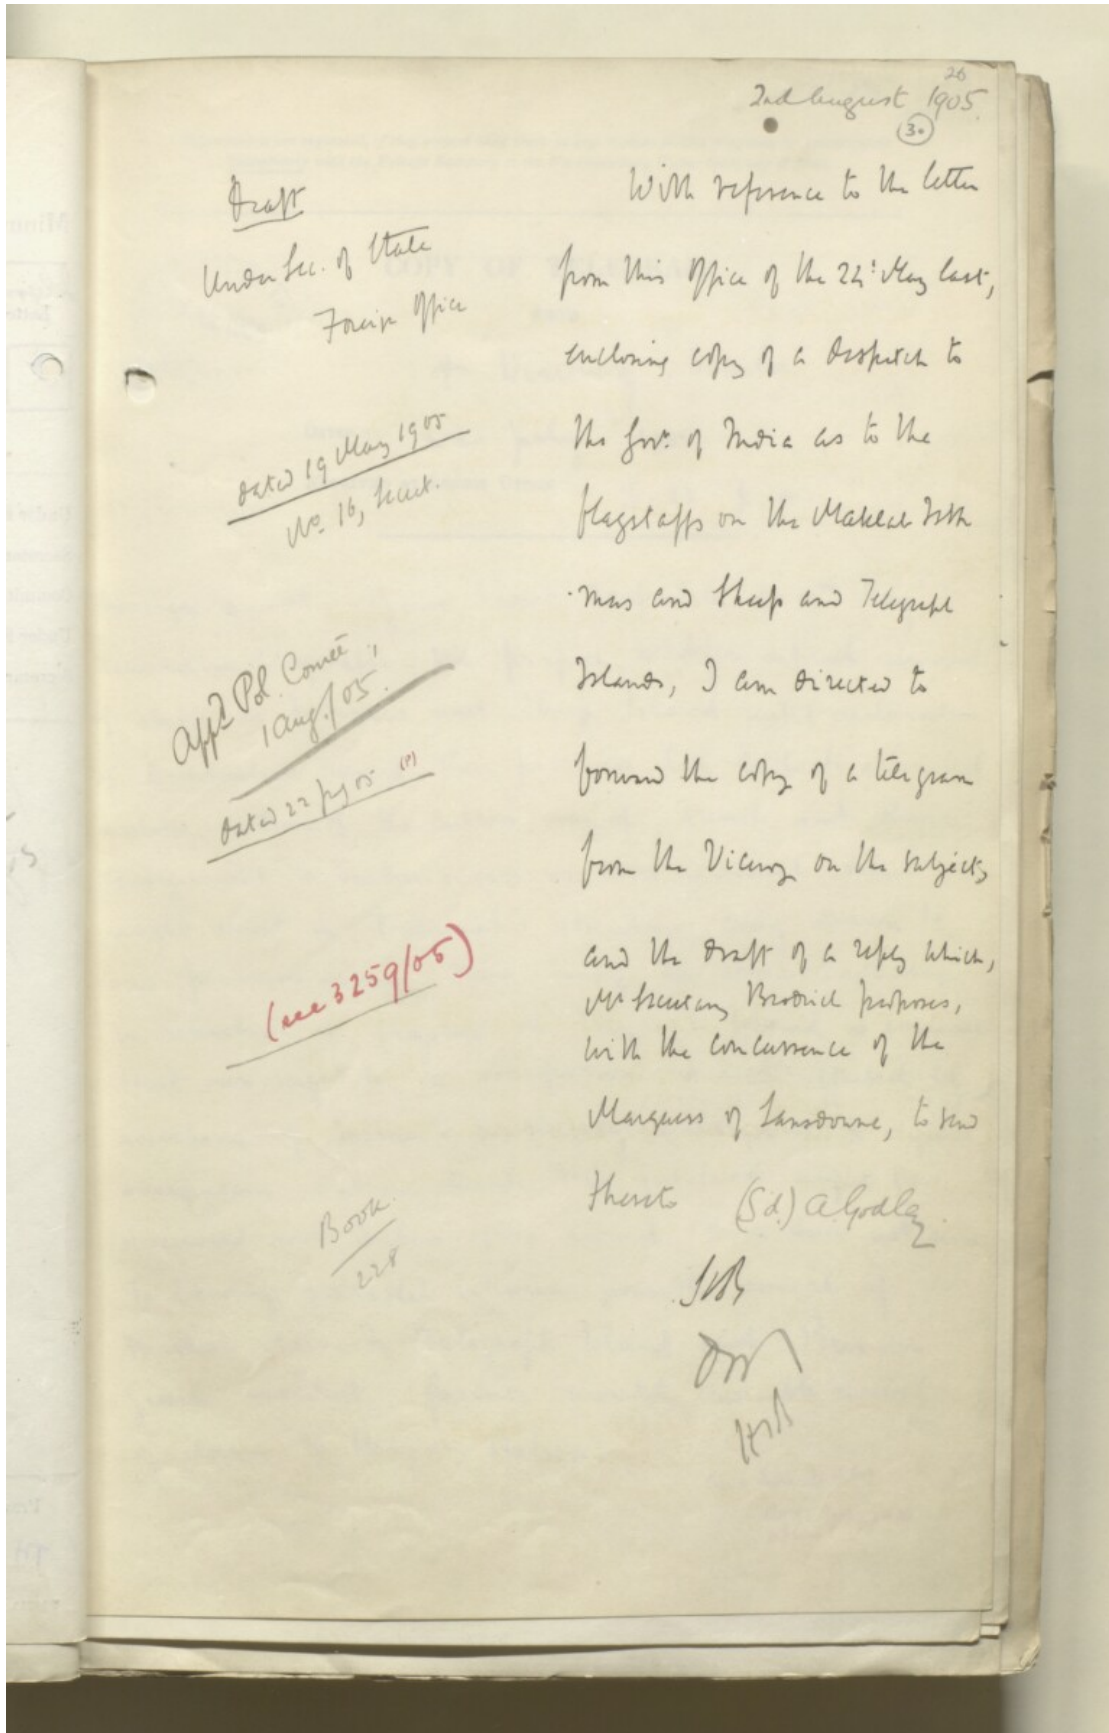 26
2nd August 1905.
30
Draft
Under Sec. of State
Foreign Office
dated 19 May 1905
No. 16, Secret.
Appd Pol. Comee.,
1 Aug./05.
Dated 22 July 05 (P)
(see 3259/05)
Book
228
With reference to the letter
from this Office of the May last,
enclosing copy of a despatch to
the Govt. of India as to the
flagstaffs on the Maklab Isth
-mus and Sheep and Telegraph
Islands, I am directed to
forward the copy of a telegram
from the Viceroy on the subject,
and the draft of a reply which,
Mr Secretary Brodrick proposes,
with the concurrence of the
Marquess of Lansdowne, to send
thereto (Sd.) A Godley.